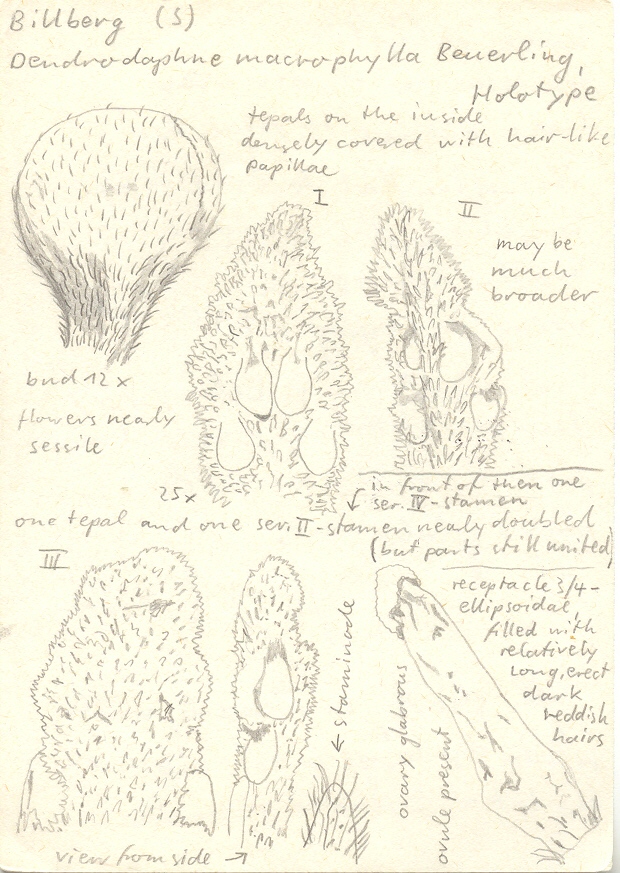 Billberg (S)
Dendrodaphne macrophylla Beuerling,
Holotype
tepals on the inside
densely covered with hair-like
papillae
I
II
may be
much
broader
bud 12 x
flowers nearly
sessile
25x
in front of them one
ser. IV-stamen
one tepal and one ser. II-stamen nearly doubled
(but parts still united)
III
receptacle 3/4-
ellipsoidal,
filled with
relatively
long, erect
dark
reddish
hairs
← staminode
ovary glabrous
ovule present
view from side →